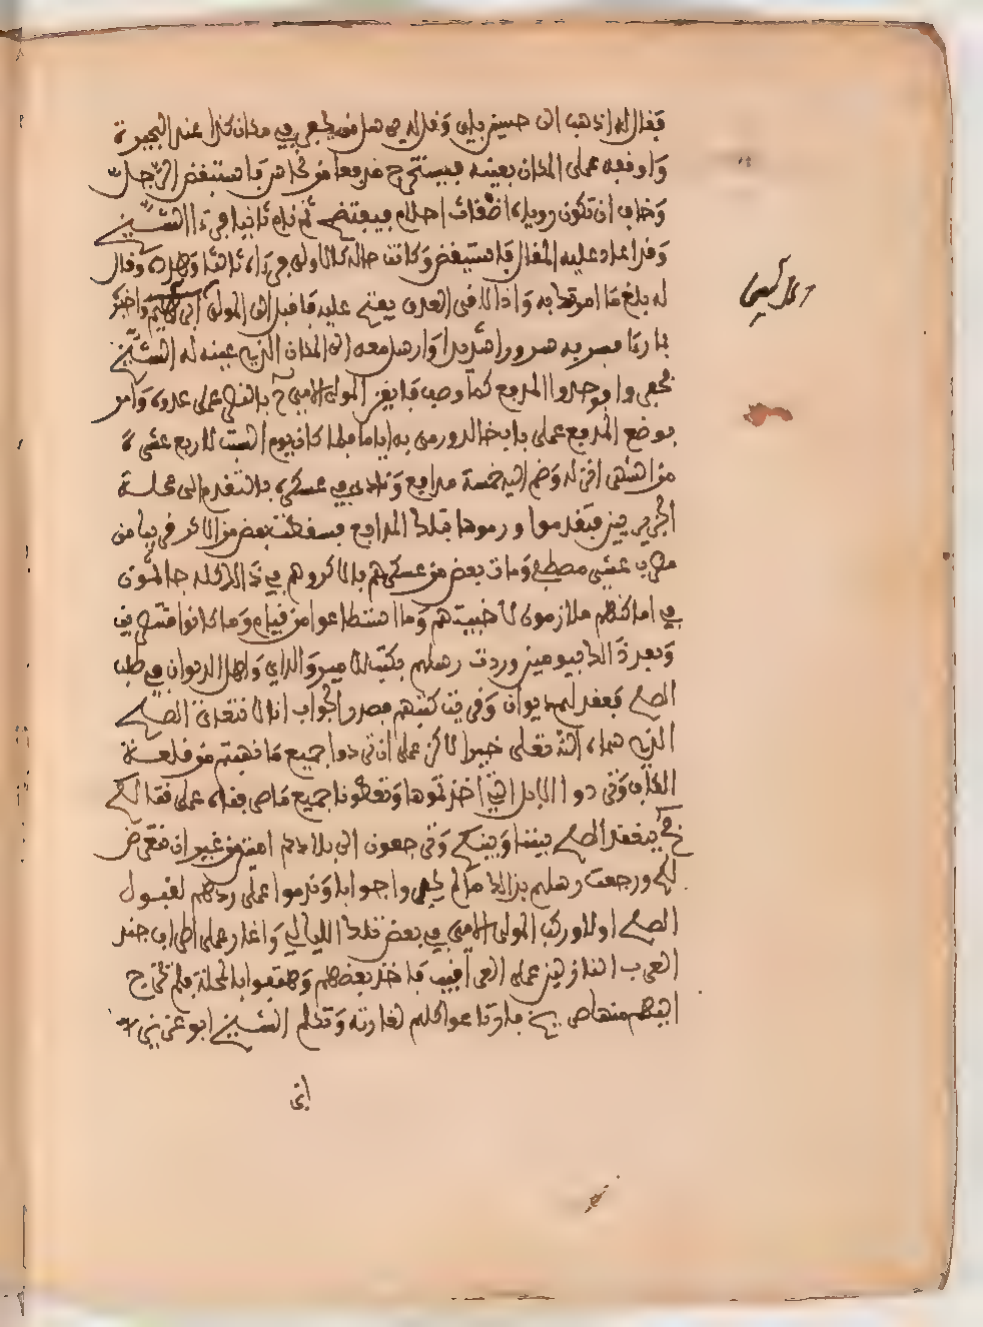 فقال له اذهب الى حسين باي وقل له يحفر في مكان كذا عند البحيرة
واوقفه على المكان بعينه فيستخرج مدفعا من نحاس فاستيقظ الرجل
وخاف ان تكون روياه اضغاث احلام فيفتضح ثم نام ثانيا فرءا الشيخ
وقد اعاد عليه المقال فاستيقظ وكانت حاله كالاولى فرءاه ثالثا وقال
له بلغ ما امرتك به واذا لاقى العدو يفتح عليه فاقبل الى المولى واخبر
بما رءا فسر به سرورا شديدا وارسل معه الى المكان الذي عينه له الشيخ
فحفروا فوجدوا المدفع كما وصف فايقن المولى الامير بالنصر على عدوه وامر
بوضع المدفع على باب خالد ورمى به اياما فلما كان يوم السبت لاربع عشرة
من الشهر انزله وضم اليه خمسة مدافع ونادى في عسكره بالتقدم الى محلة
الجزيريين فتقدموا ورموها بتلك المدافع فسقطت بعض من الاكر قريبا من
مضرب عشي مصطفى ومات بعض من عسكرهم بالاكر وهم في ذالك كله جالسون
في اماكنهم ملازمون لاخبيتهم وما استطاعوا من قيام وما كانوا منتصرين
وبعد ذالك بيومين وردت رسلهم بكتب للامير والداي واهل الديوان في طلب
الصلح فعقد لهم ديوان وقريت كتبهم فصدر الجواب انا لا نتعدى الصلح
الذي سماه الله تعالى خيرا لاكن على ان تردوا جميع ما نهبتم من قلعة
الكاف وتردوا الابل التي اخذتموها وتعطونا جميع ما صرفناه على قتالكم
ثم ينعقد الصلح بيننا وبينكم وترجعون الى بلادكم امنين من غير ان نتعرض
لكم ورجعت رسلهم بذالك فلم يحيروا جوابا وندموا على ردهم لقبول
الصلح اولا وركب المولى الامير في بعض تلك الليالي واغار على اطراف جند
العرب النازلين على العراقيب فاخذ بعضهم وهتفوا بالمحلة فلم تخرج
اليهم منها صريخ فارتاعوا كلهم لغارته وتكلم الشيخ ابو عزيز